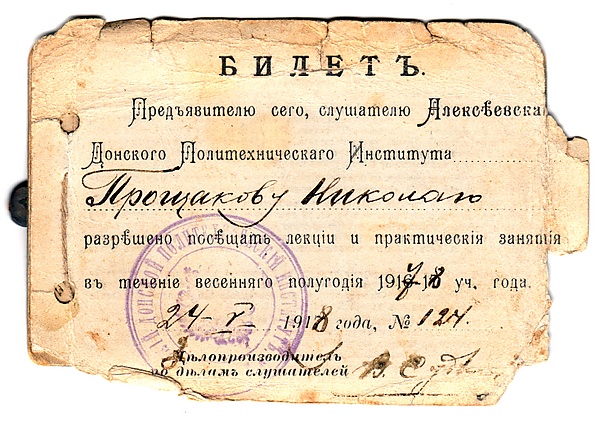 БИЛЕТЪ.
Предъявителю сего, слушателю Алексѣевска
Донского Политехническаго Института
Прощакову Николаю
разрѣшено посѣщать лекціи и практическія занятія
въ теченіе весенняго полугодія 1917-18 уч. года.
24-V 1918 года, № 124
Дѣлопроизводитель
по дѣламъ слушателей
ДОНСКОЙ ПОЛИТЕХНИЧЕСКІЙ ИНСТИТУТЪ